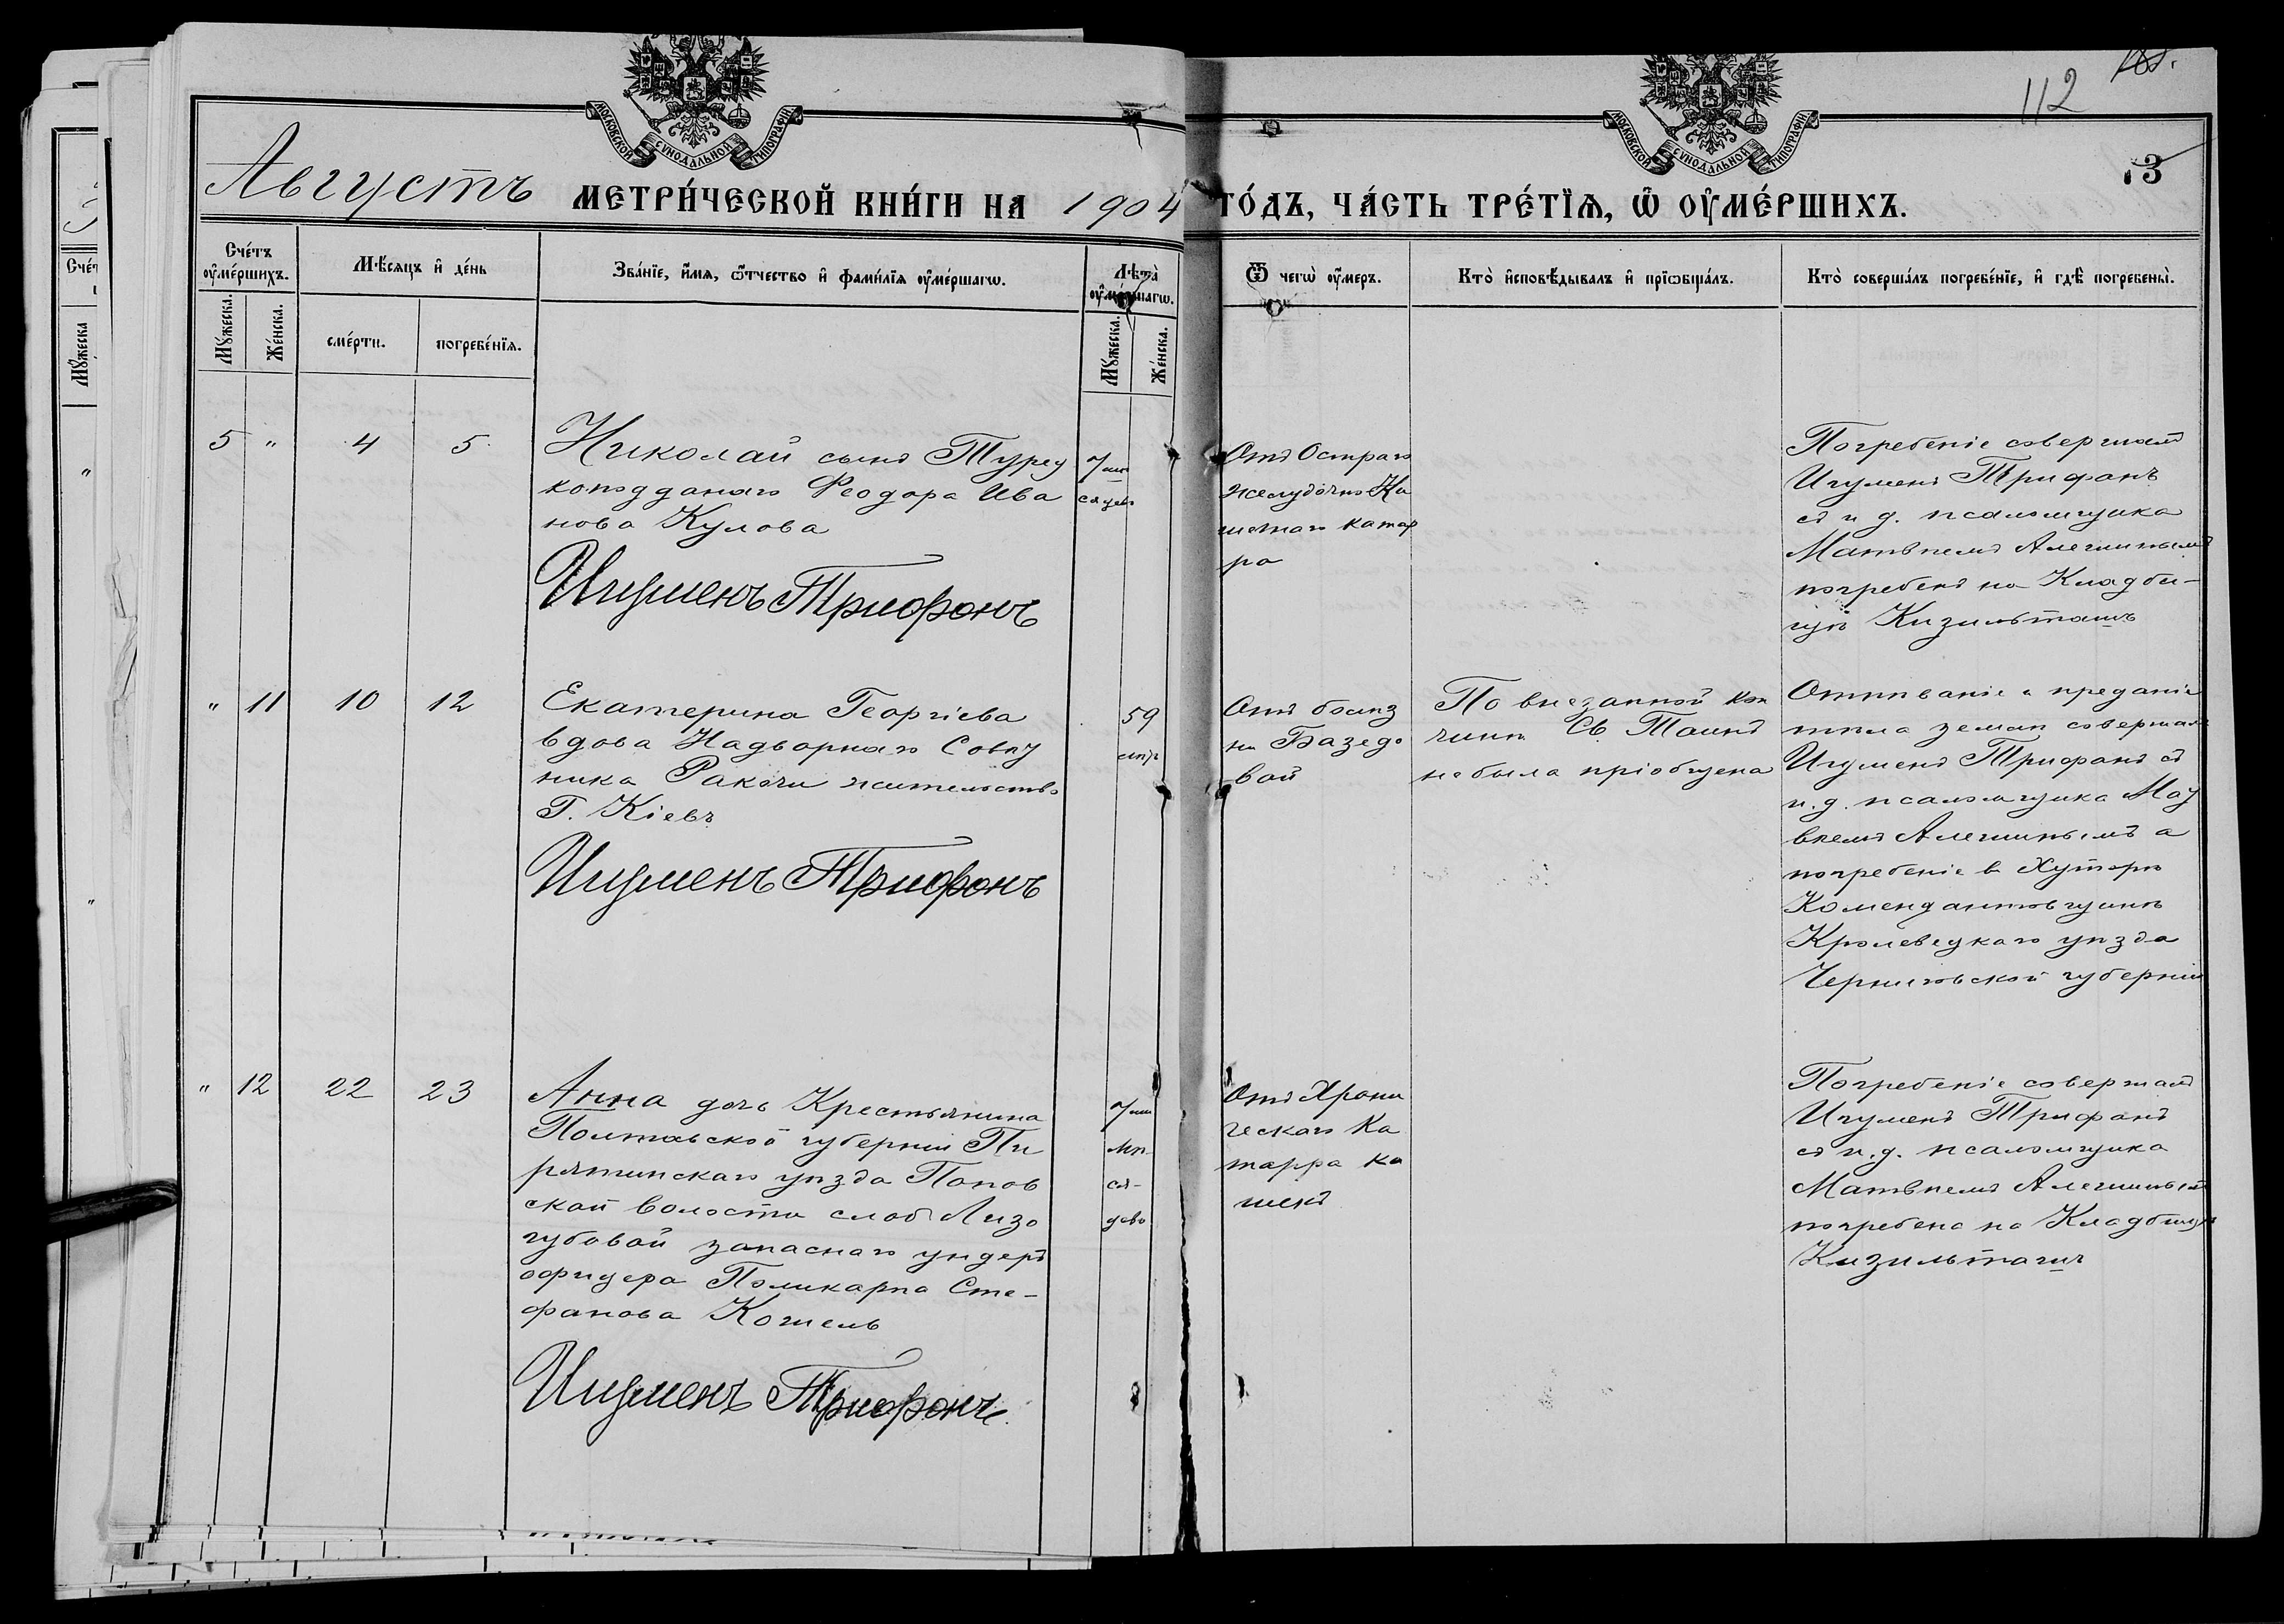 112
МОСКОВСКОЙ СѴНОДАЛЬНОЙ ТИПОГРАФІИ
МОСКОВСКОЙ СѴНОДАЛЬНОЙ ТИПОГРАФІИ
Августъ МЕТРИ́ЧЕСКОЙ КНИ́ГИ НА 1904 ГО́ДЪ, ЧА́СТЬ ТРЕ́ТІѦ, Ѡ ОУМЕ́РШИХЪ.
3
Сче́тъ оумéршихъ.
Мѣ́сяцъ и де́нь
Зва́нїе, и́мя, ѻ́тчество и фами́лїя оумéршагѡ.
Лѣта̀ оумéршагѡ.
Ѿ чегѡ̀ оу́меръ.
Кто̀ исповѣ́дывалъ и прїѡбща́лъ.
Кто̀ соверша́лъ погребе́нїе, и гдѣ̀ погребены̀.
Мꙋ́жеска.
Же́нска.
сме́рти.
погребе́нїя.
Мꙋ́жеска.
Же́нска.
5 " 4 5
Николай сынъ Турец
коподданаго Феодора Ива
нова Кулова
Игуменъ Трифонъ
7 мѣ
сяцевъ
Отъ Остраго
желудочно Ки
шечнаго катар
ра
Погребеніе совершалъ
Игуменъ Трифонъ
съ и д. псаломщика
Матвѣемъ Алешинымъ
погребенъ на Кладби-
щѣ Кизильташъ
" 11 10 12
Екатерина Георгіева
вдова Надворнаго Совѣт
ника Ракочи жительство
Г. Кіевъ
Игуменъ Трифонъ
59
лѣтъ
Отъ болѣз
ни Базедо
вой
По внезапной кон
чинѣ Св. Таинъ
не была пріобщена
Отпѣваніе и преданіе
тѣла землѣ совершалъ
Игуменъ Трифонъ съ
и.д. псаломщика Мат
вѣемъ Алешинымъ а
погребеніе в Хуторѣ
Комендантовщинѣ
Кролевецкаго уѣзда
Черниговской губерніи
" 12 22 23
Анна дочь Крестьянина
Полтавской губерніи Пи
рятинскаго уѣзда Попов
ской волости слоб Лизо
губовой запаснаго ундеръ
офицера Поликарпа Сте-
фанова Кошель
Игуменъ Трифонъ
7
мѣ
ся-
цевъ
Отъ Хрони
ческаго Ка
тарра ки
шекъ
Погребеніе совершалъ
Игуменъ Трифонъ
съ и.д. псаломщика
Матвѣемъ Алешинымъ
погребена на Кладбищѣ
Кизильташъ